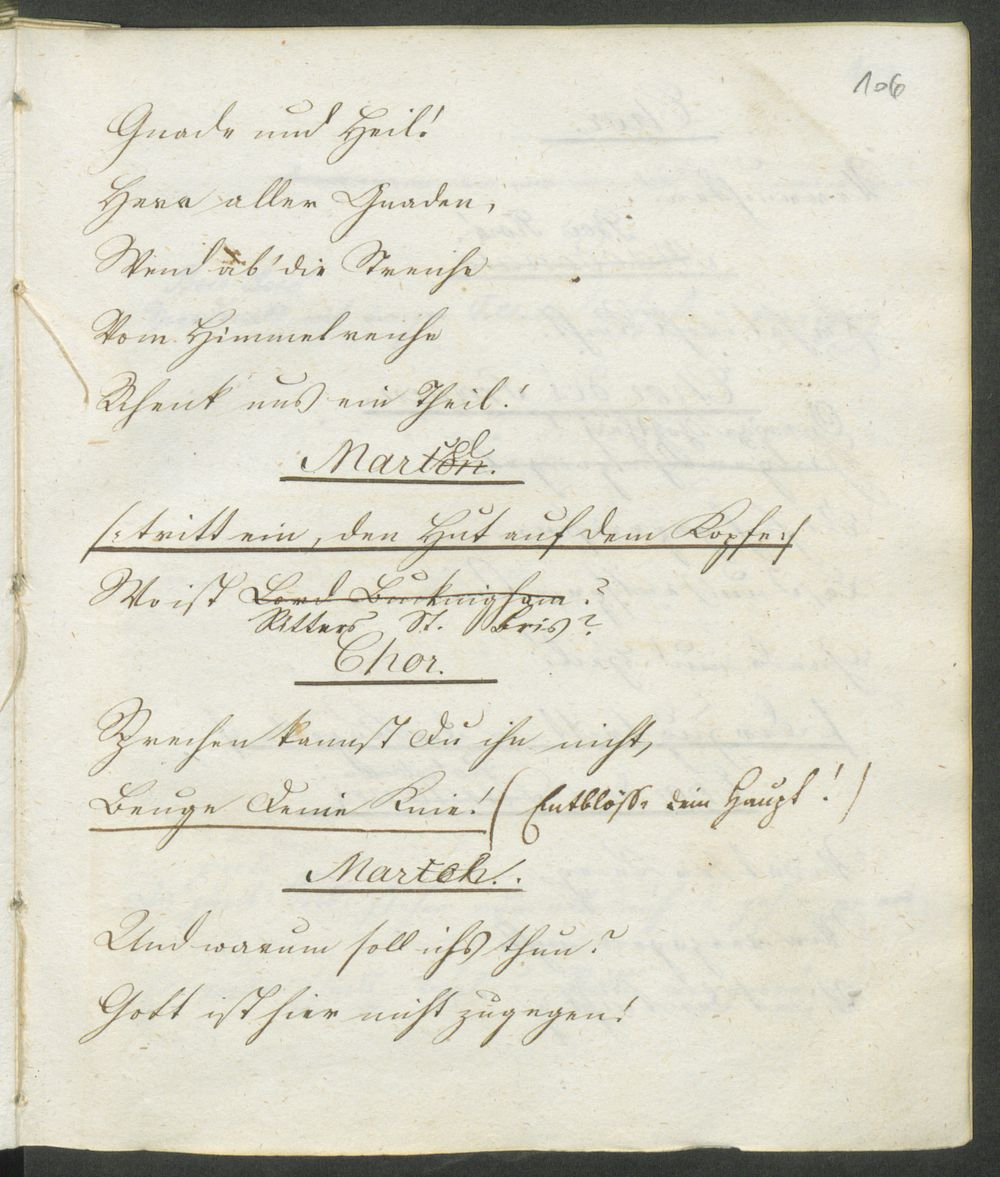 106
Gnade und Heil!
Herr aller Gnaden,
Wend' ab die Streiche
Vom Himmelreiche
Schenk uns ein Theil!
Marcel.
/: tritt ein, den Hut auf dem Kopfe :/
Wo ist Lord Buckingham?
Ritter St. Bris?
Chor.
Sprechen kannst Du ihn nicht,
Beuge Deine Knie! (Entblösse dein Haupt!)
Marcel.
Und warum soll ichs thun?
Gott ist hier nicht zugegen!